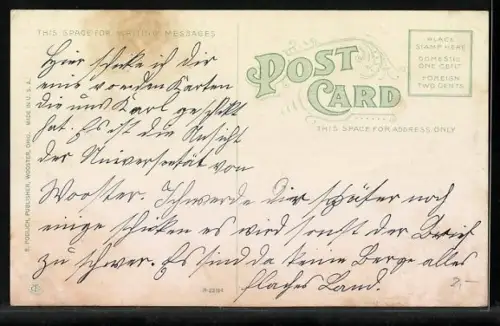 THIS SPACE FOR WRITING MESSAGES
Hier schicke ich dir
eine von den Karten
die uns Karl geschikt
hat. Es ist die Ansicht
der Universetät von
Wooster. Ich werde dir später noch
einige schicken es wird sonst der Brief
zu schwer. Es sind da keine Berge alles
flaches Land.
POST CARD
THIS SPACE FOR ADDRESS ONLY
PLACE
STAMP HERE
DOMESTIC
ONE CENT
FOREIGN
TWO CENTS
PUBLISHER, WOOSTER, OHIO. MADE IN U. S. A.
2,-